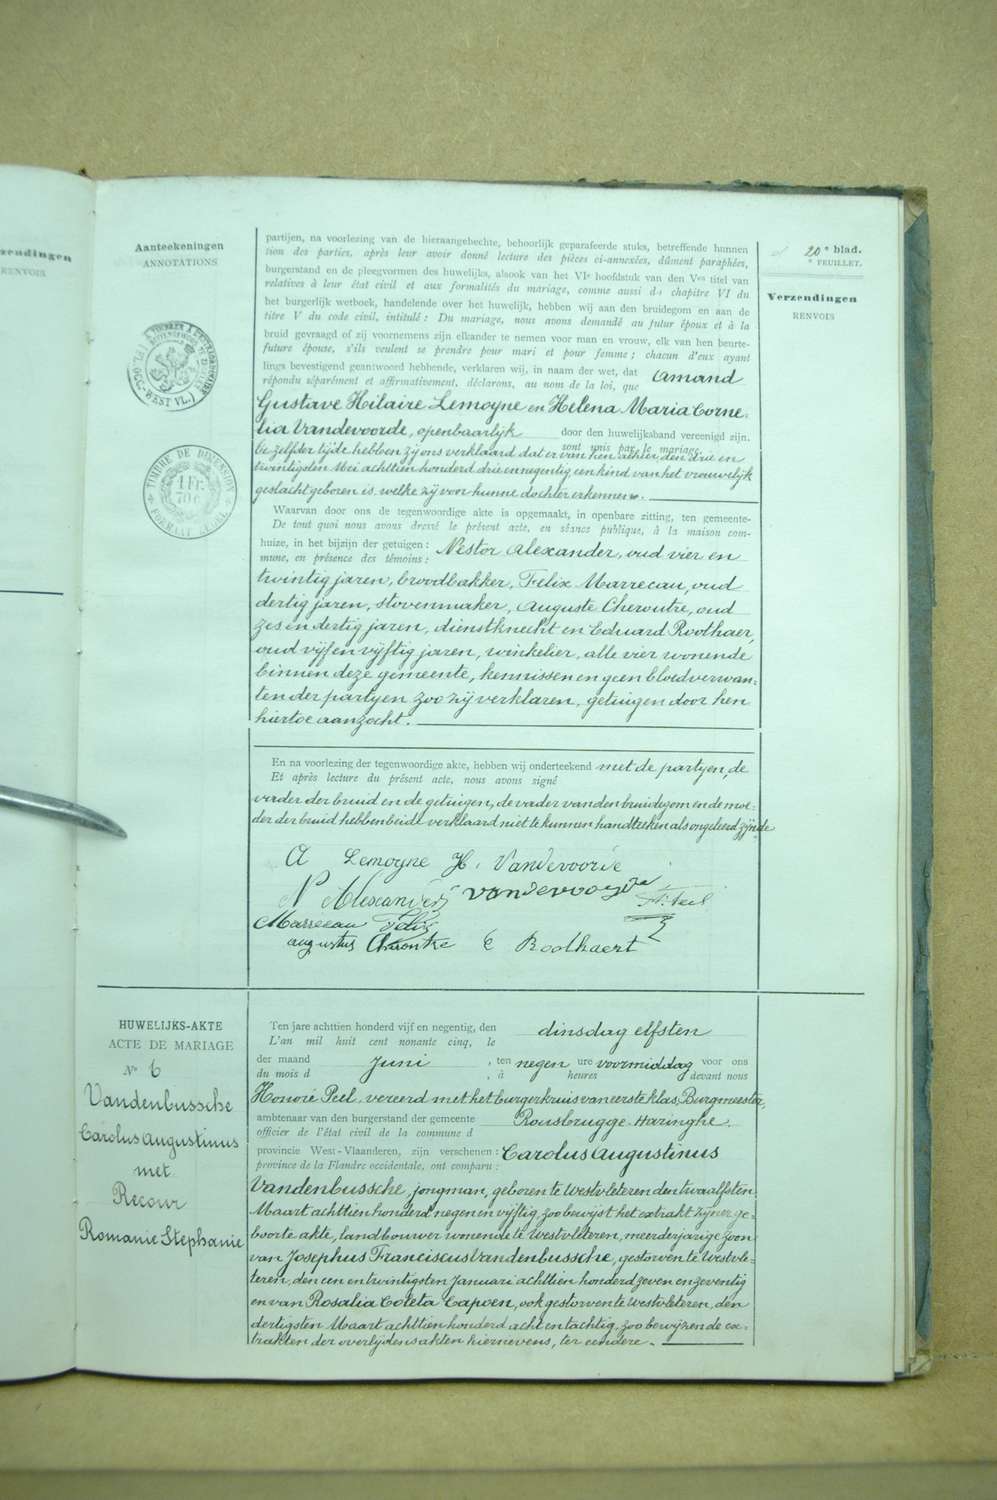 zendingen
RENVOIS
Aanteekeningen
ANNOTATIONS
20e blad.
e FEUILLET.
Verzendingen
RENVOIS
partijen, na voorlezing van de hieraangehechte, behoorlijk geparafeerde stuks, betreffende hunnen
tion des parties, après leur avoir donné lecture des pièces ci-annexées, dûment paraphées,
burgerstand en de pleegvormen des huwelijks, alsook van het VIe hoofdstuk van den Ven titel van
relatives à leur état civil et aux formalités du mariage, comme aussi du chapitre VI du
het burgerlijk wetboek, handelende over het huwelijk, hebben wij aan den bruidegom en aan de
titre V du code civil, intitulé : Du mariage, nous avons demandé au futur époux et à la
bruid gevraagd of zij voornemens zijn elkander te nemen voor man en vrouw, elk van hen beurte-
future épouse, s'ils veulent se prendre pour mari et pour femme ; chacun d'eux ayant
lings bevestigend geantwoord hebbende, verklaren wij, in naam der wet, dat Amand
répondu séparément et affirmativement, déclarons, au nom de la loi, que
Gustave Hilaire Lemoyne en Helena Maria Corne-
lia Vandevoorde, openbaarlijk door den huwelijksband vereenigd zijn.
sont unis par le mariage.
te zelfder tijde hebben zij ons verklaard dat er van hen alhier den drie en
twintigsten Mei achttien honderd drie en negentig een kind van het vrouwelijk
geslacht geboren is welke zij voor hunne dochter erkennen.
TIMBRE DE DIMENSION
1 Fr.
70 c.
FORMAT
Waarvan door ons de tegenwoordige akte is opgemaakt, in openbare zitting, ten gemeente-
De tout quoi nous avons dressé le présent acte, en séance publique, à la maison com-
huize, in het bijzijn der getuigen : Nestor Alexander, oud vier en
mune, en présence des témoins :
twintig jaren, broodbakker, Felix Marrecau, oud
dertig jaren, stovenmaker, Auguste Cheroutre, oud
zes en dertig jaren, dienstknecht en Eduard Roothaer,
oud vijf en vijftig jaren, winkelier, alle vier wonende
binnen deze gemeente, kennissen en geen bloedverwan-
ten der partyen zoo zij verklaren, getuigen door hen
hiertoe aanzocht.
En na voorlezing der tegenwoordige akte, hebben wij onderteekend met de partyen, de
Et après lecture du présent acte, nous avons signé
vader der bruid en de getuigen, de vader van den bruidegom en de moe-
der der bruid hebben beide verklaard niet te kunnen handteeken als ongeleerd zijnde
A Lemoyne H. Vandevoorde
N Alexander vandevoorde
Marrecau Felix
augustus E Roothaert
HUWELIJKS-AKTE
ACTE DE MARIAGE
No 6
Vandenbussche
Carolus Augustinus
met
Recour
Romanie Stephanie
Ten jare achttien honderd vijf en negentig, den dinsdag elfsten
L'an mil huit cent nonante cinq, le
der maand Juni, ten negen ure voormiddag voor ons
du mois d , à heures devant nous
Honoré Peel, vereerd met het burgerkruis van eerste klas, Burgmeester,
ambtenaar van den burgerstand der gemeente Rousbrugge-Haringhe.
officier de l'état civil de la commune d
provincie West-Vlaanderen, zijn verschenen : Carolus Augustinus
province de la Flandre occidentale, ont comparu :
Vandenbussche, jongman, geboren te Westvleteren den twaalfsten
Maart achttien honderd negen en vijftig, zoo bewijst het extrakt zijner ge-
boorte akte, landbouwer wonende te Westvleteren, meerderjarige zoon
van Josephus Franciscus Vandenbussche, gestorven te Westvle-
teren, den een en twintigsten Januari achttien honderd zeven en zeventig
en van Rosalia Coleta Capoen, ook gestorven te Westvleteren, den
dertigsten Maart achttien honderd acht en tachtig, zoo bewijzen de ex-
trakten der overlijdensakten hiernevens, ter eendere.